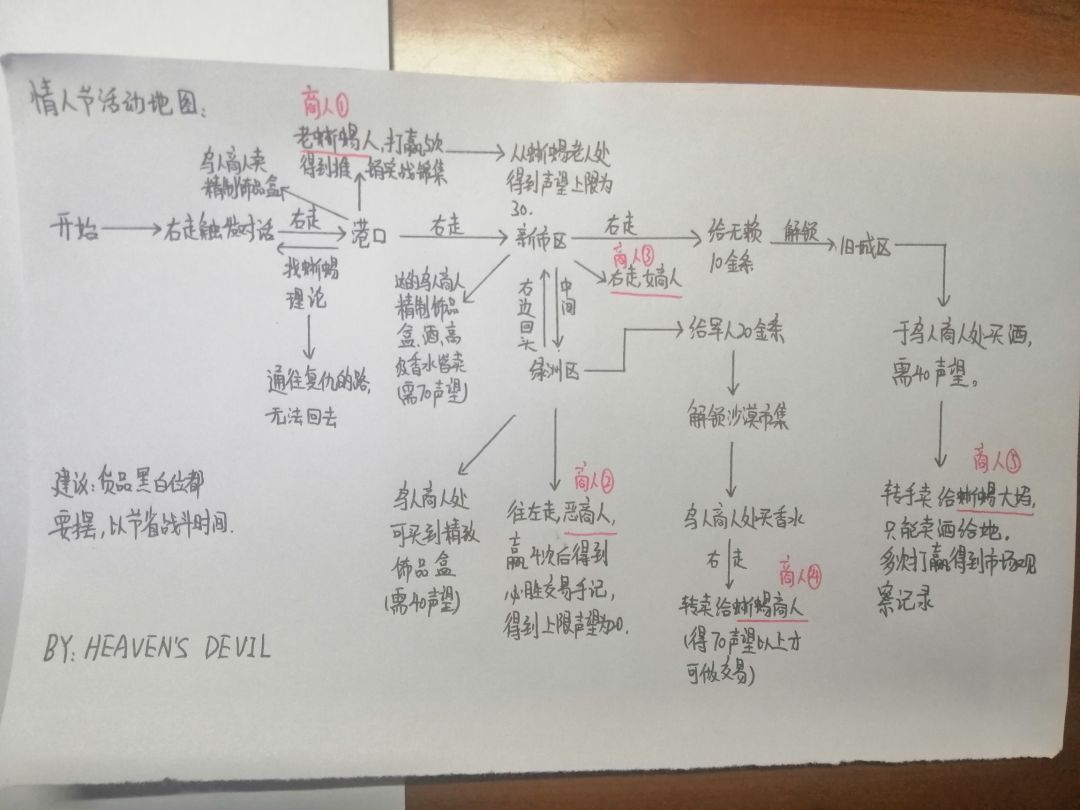 情人节活动地图:
商人①
老蜥蜴人,打赢5次
得到推 销实战锦集
从蜥蜴老人处
得到声望上限为
30.
乌人商人卖
精制饰品盒
开始
右走触发对话
右走
港口
右走
新市区
右走
给无赖
10金条
解锁
旧城区
商人③
右走,女商人
找蜥蜴
理论
通往复仇的路,
无法回去
这的乌人商人
精制饰品
盒、酒、高
级香水皆卖
(需70声望)
右边回头
中间
绿洲区
给军人20金条
解锁沙漠市集
于乌人商人处买酒,
需40声望。
建议:货品黑白位都
要摆,以节省战斗时间.
乌人商人处
可买到精致
饰品盒
(需40声望)
商人②
往左走,恶商人,
赢4次后得到
必胜交易手记,
得到上限声望为20.
乌人商人处买香水
右走
商人④
转卖给蜥蜴商人
(得70声望以上才
可做交易)
商人⑤
转手卖给蜥蜴大妈,
只能卖酒给她.
多次打赢得到市场观
察记录
BY: HEAVEN'S DEVIL